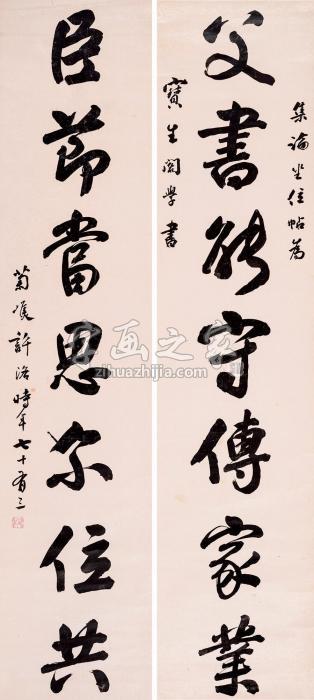 集論坐位帖為
父書能守傳家業
寶生閣學書
臣節當思尔位共
菊 許 時年七十有三
字画之家
zihuazhijia.com